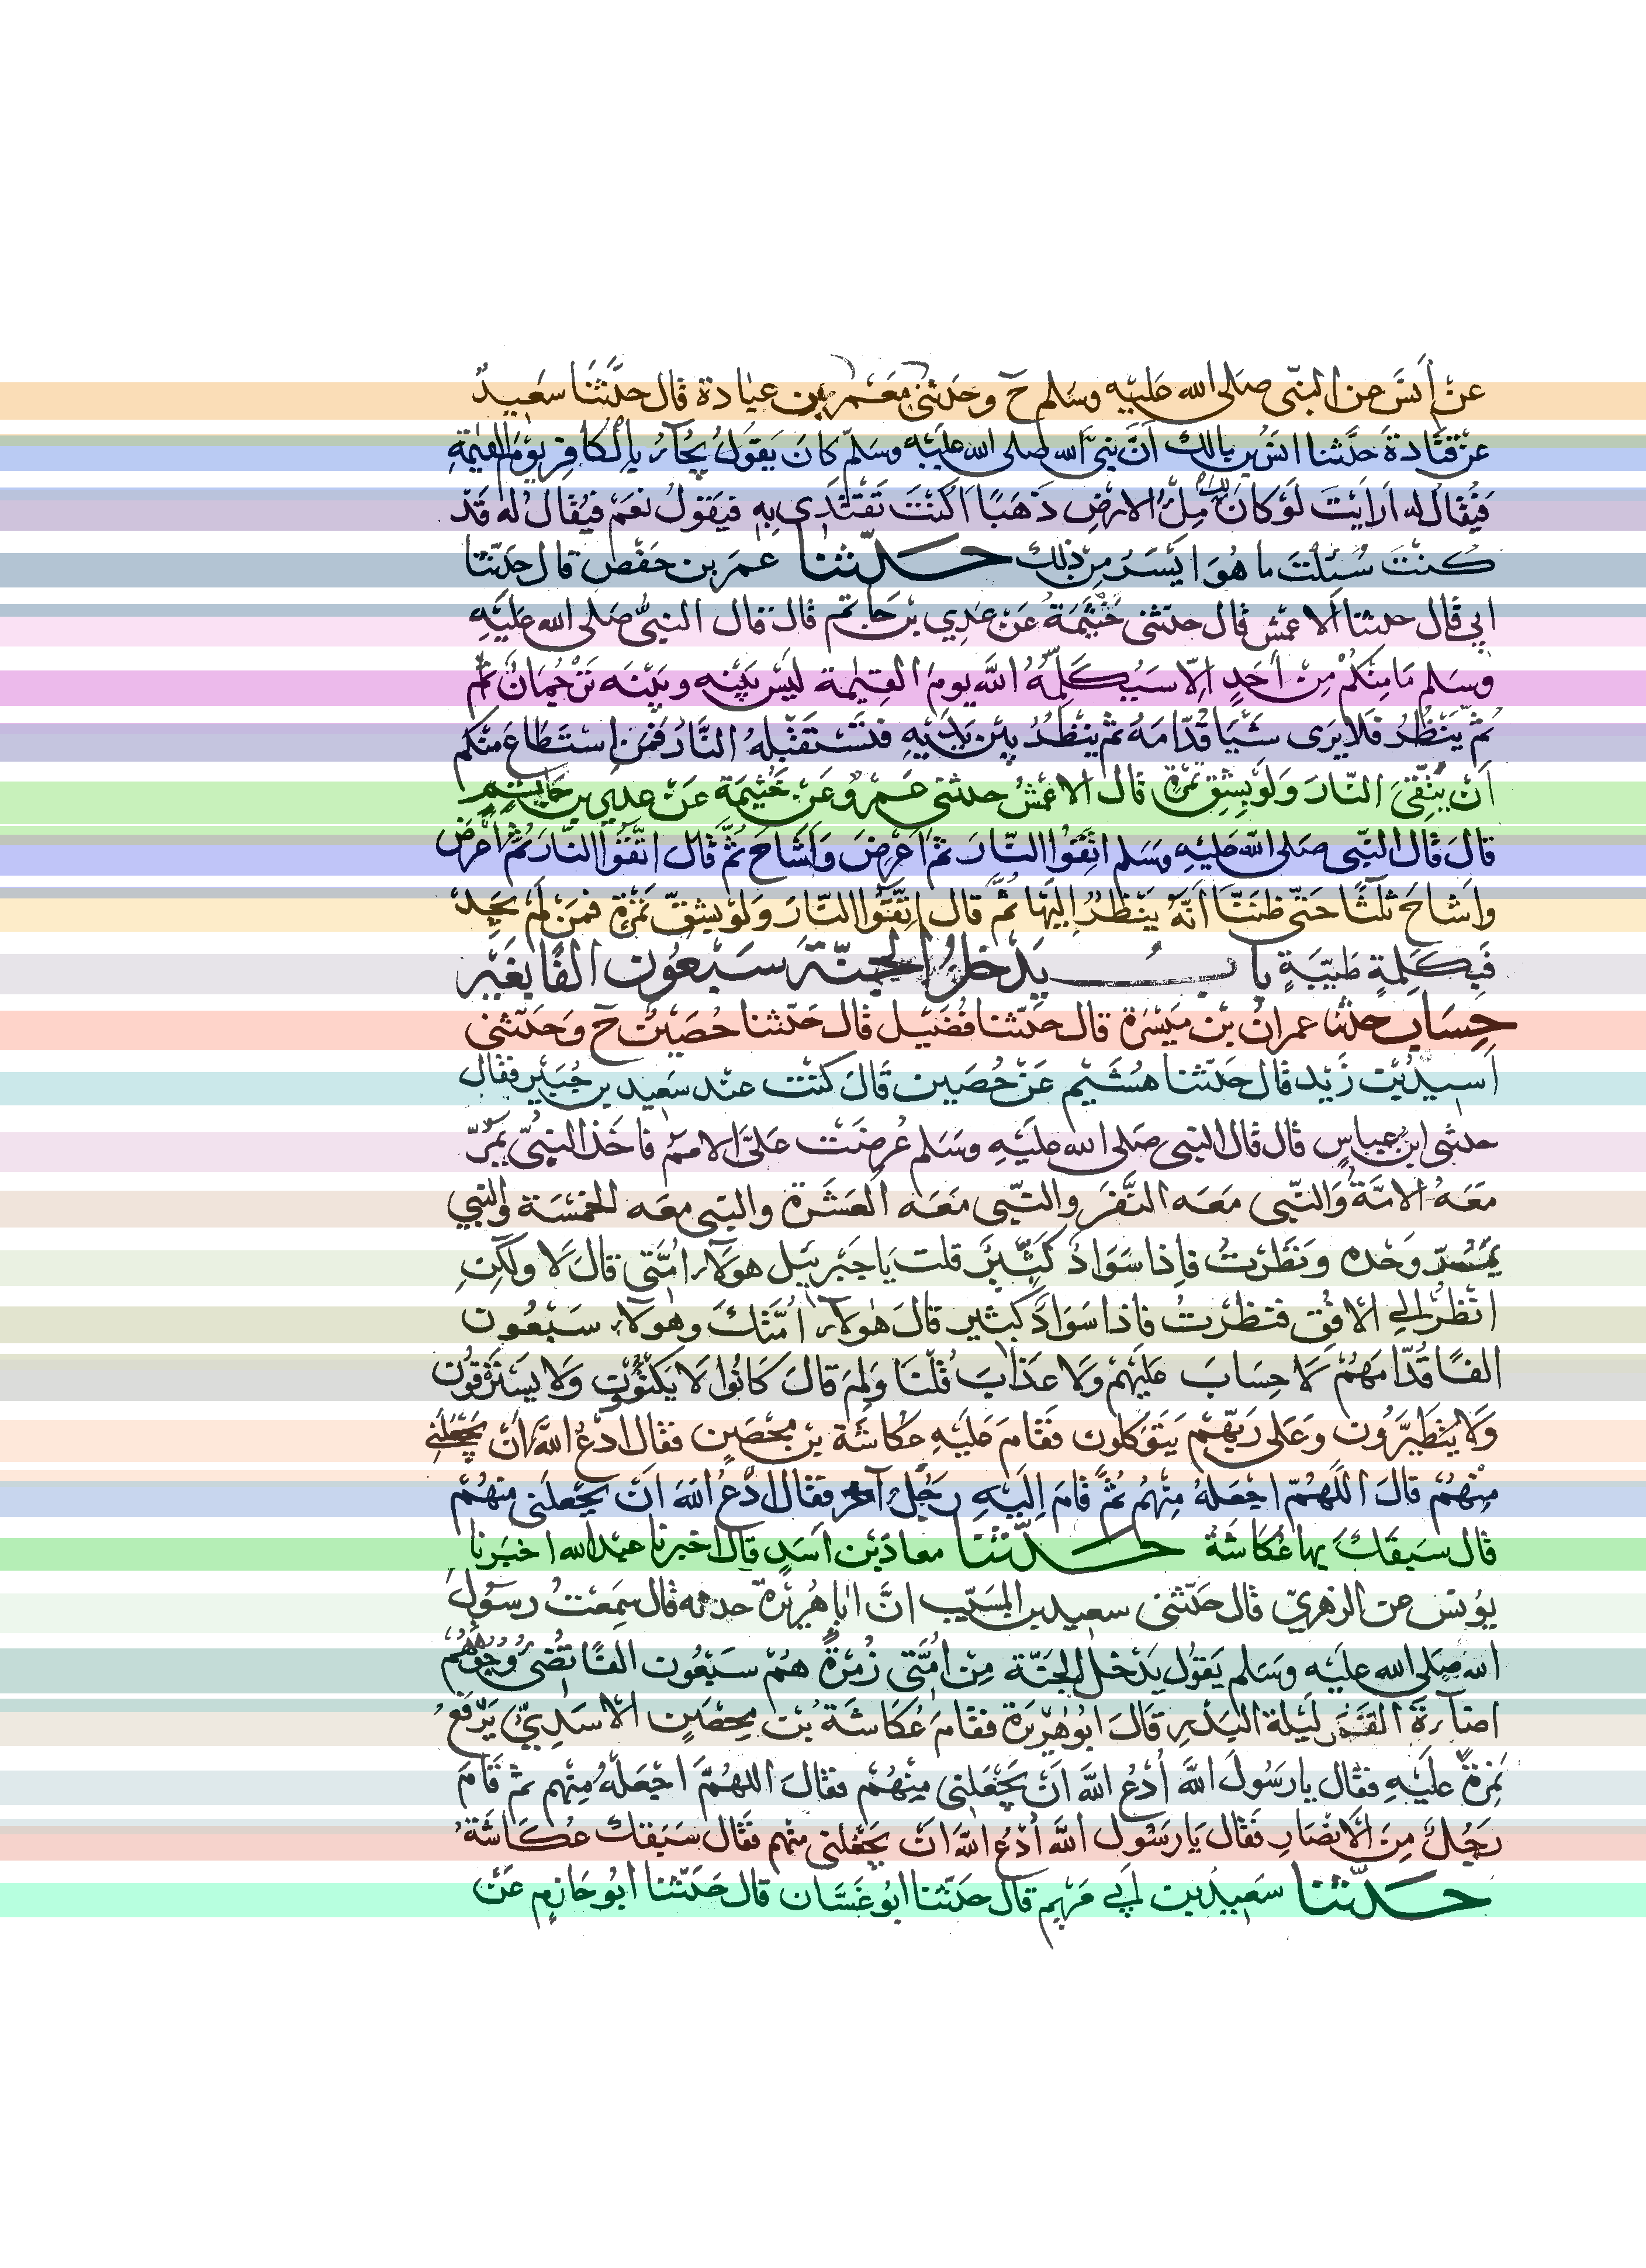 عن أنس عن النبي صلى الله عليه وسلم ح وحدثني معمر بن عبادة قال حدثنا سعيد
عن قتادة حدثنا انس بن مالك أن نبي الله صلى الله عليه وسلم كان يقول يجاء بالكافر يوم القيمة
فيقال له أرايت لو كان لك ملء الارض ذهبا اكنت تفتدي به فيقول نعم فيقال له قد
كنت سئلت ما هو ايسر من ذلك حدثنا عمر بن حفص قال حدثنا
ابي قال حدثنا الاعمش قال حدثني خيثمة عن عدي بن حاتم قال قال النبي صلى الله عليه
وسلم ما منكم من أحد إلا سيكلمه الله يوم القيمة ليس بينه وبينه ترجمان ثم
ثم ينظر فلا يرى شيا قدامه ثم ينظر بين يديه فتستقبله النار فمن استطاع منكم
أن يتقي النار ولو بشق تمرة قال الاعمش حدثني عمرو عن خيثمة عن عدي بن حاتم
قال قال النبي صلى الله عليه وسلم اتقوا النار ثم اعرض واشاح ثم قال اتقوا النار ثم اعرض
واشاح ثلثا حتى ظننا أنه ينظر إليها ثم قال اتقوا النار ولو بشق تمرة فمن لم يجد
فبكلمة طيبة باب يدخل الجنة سبعون الفا بغير
حساب حدثنا عمران بن ميسرة قال حدثنا فضيل قال حدثنا حصين ح وحدثني
اسيد بن زيد قال حدثنا هشيم عن حصين قال كنت عند سعيد بن جبير فقال
حدثني ابن عباس قال قال النبي صلى الله عليه وسلم عرضت علي الامم فاخذ النبي يمر
معه الامة والنبي معه النفر والنبي معه العشرة والنبي معه الخمسة والنبي
يمر وحده ونظرت فإذا سواد كثير قلت يا جبريل هولاء امتي قال لا ولكن
انظر إلى الافق فنظرت فاذا سواد كثير قال هولاء امتك وهولاء سبعون
الفا قدامهم لا حساب عليهم ولا عذاب قلنا ولم قال كانوا لا يكتوون ولا يسترقون
ولا يتطيرون وعلى ربهم يتوكلون فقام عليه عكاشة بن محصن فقال ادع الله ان يجعلني
منهم قال اللهم اجعله منهم ثم قام إليه رجل آخر فقال ادع الله ان يجعلني منهم
قال سبقك بها عكاشة حدثنا معاذ بن أسد قال اخبرنا عبد الله اخبرنا
يونس عن الزهري قال حدثني سعيد بن المسيب ان ابا هريرة حدثه قال سمعت رسول
الله صلى الله عليه وسلم يقول يدخل الجنة من امتي زمرة هم سبعون الفا تضيء وجوههم
اضاءة القمر ليلة البدر قال ابو هريرة فقام عكاشة بن محصن الاسدي يرفع
نمرة عليه فقال يا رسول الله أدع الله ان يجعلني منهم فقال اللهم اجعله منهم ثم قام
رجل من الانصار فقال يا رسول الله أدع الله ان يجعلني منهم فقال سبقك عكاشة
حدثنا سعيد بن ابي مريم قال حدثنا ابو غسان قال حدثنا ابو حازم عن